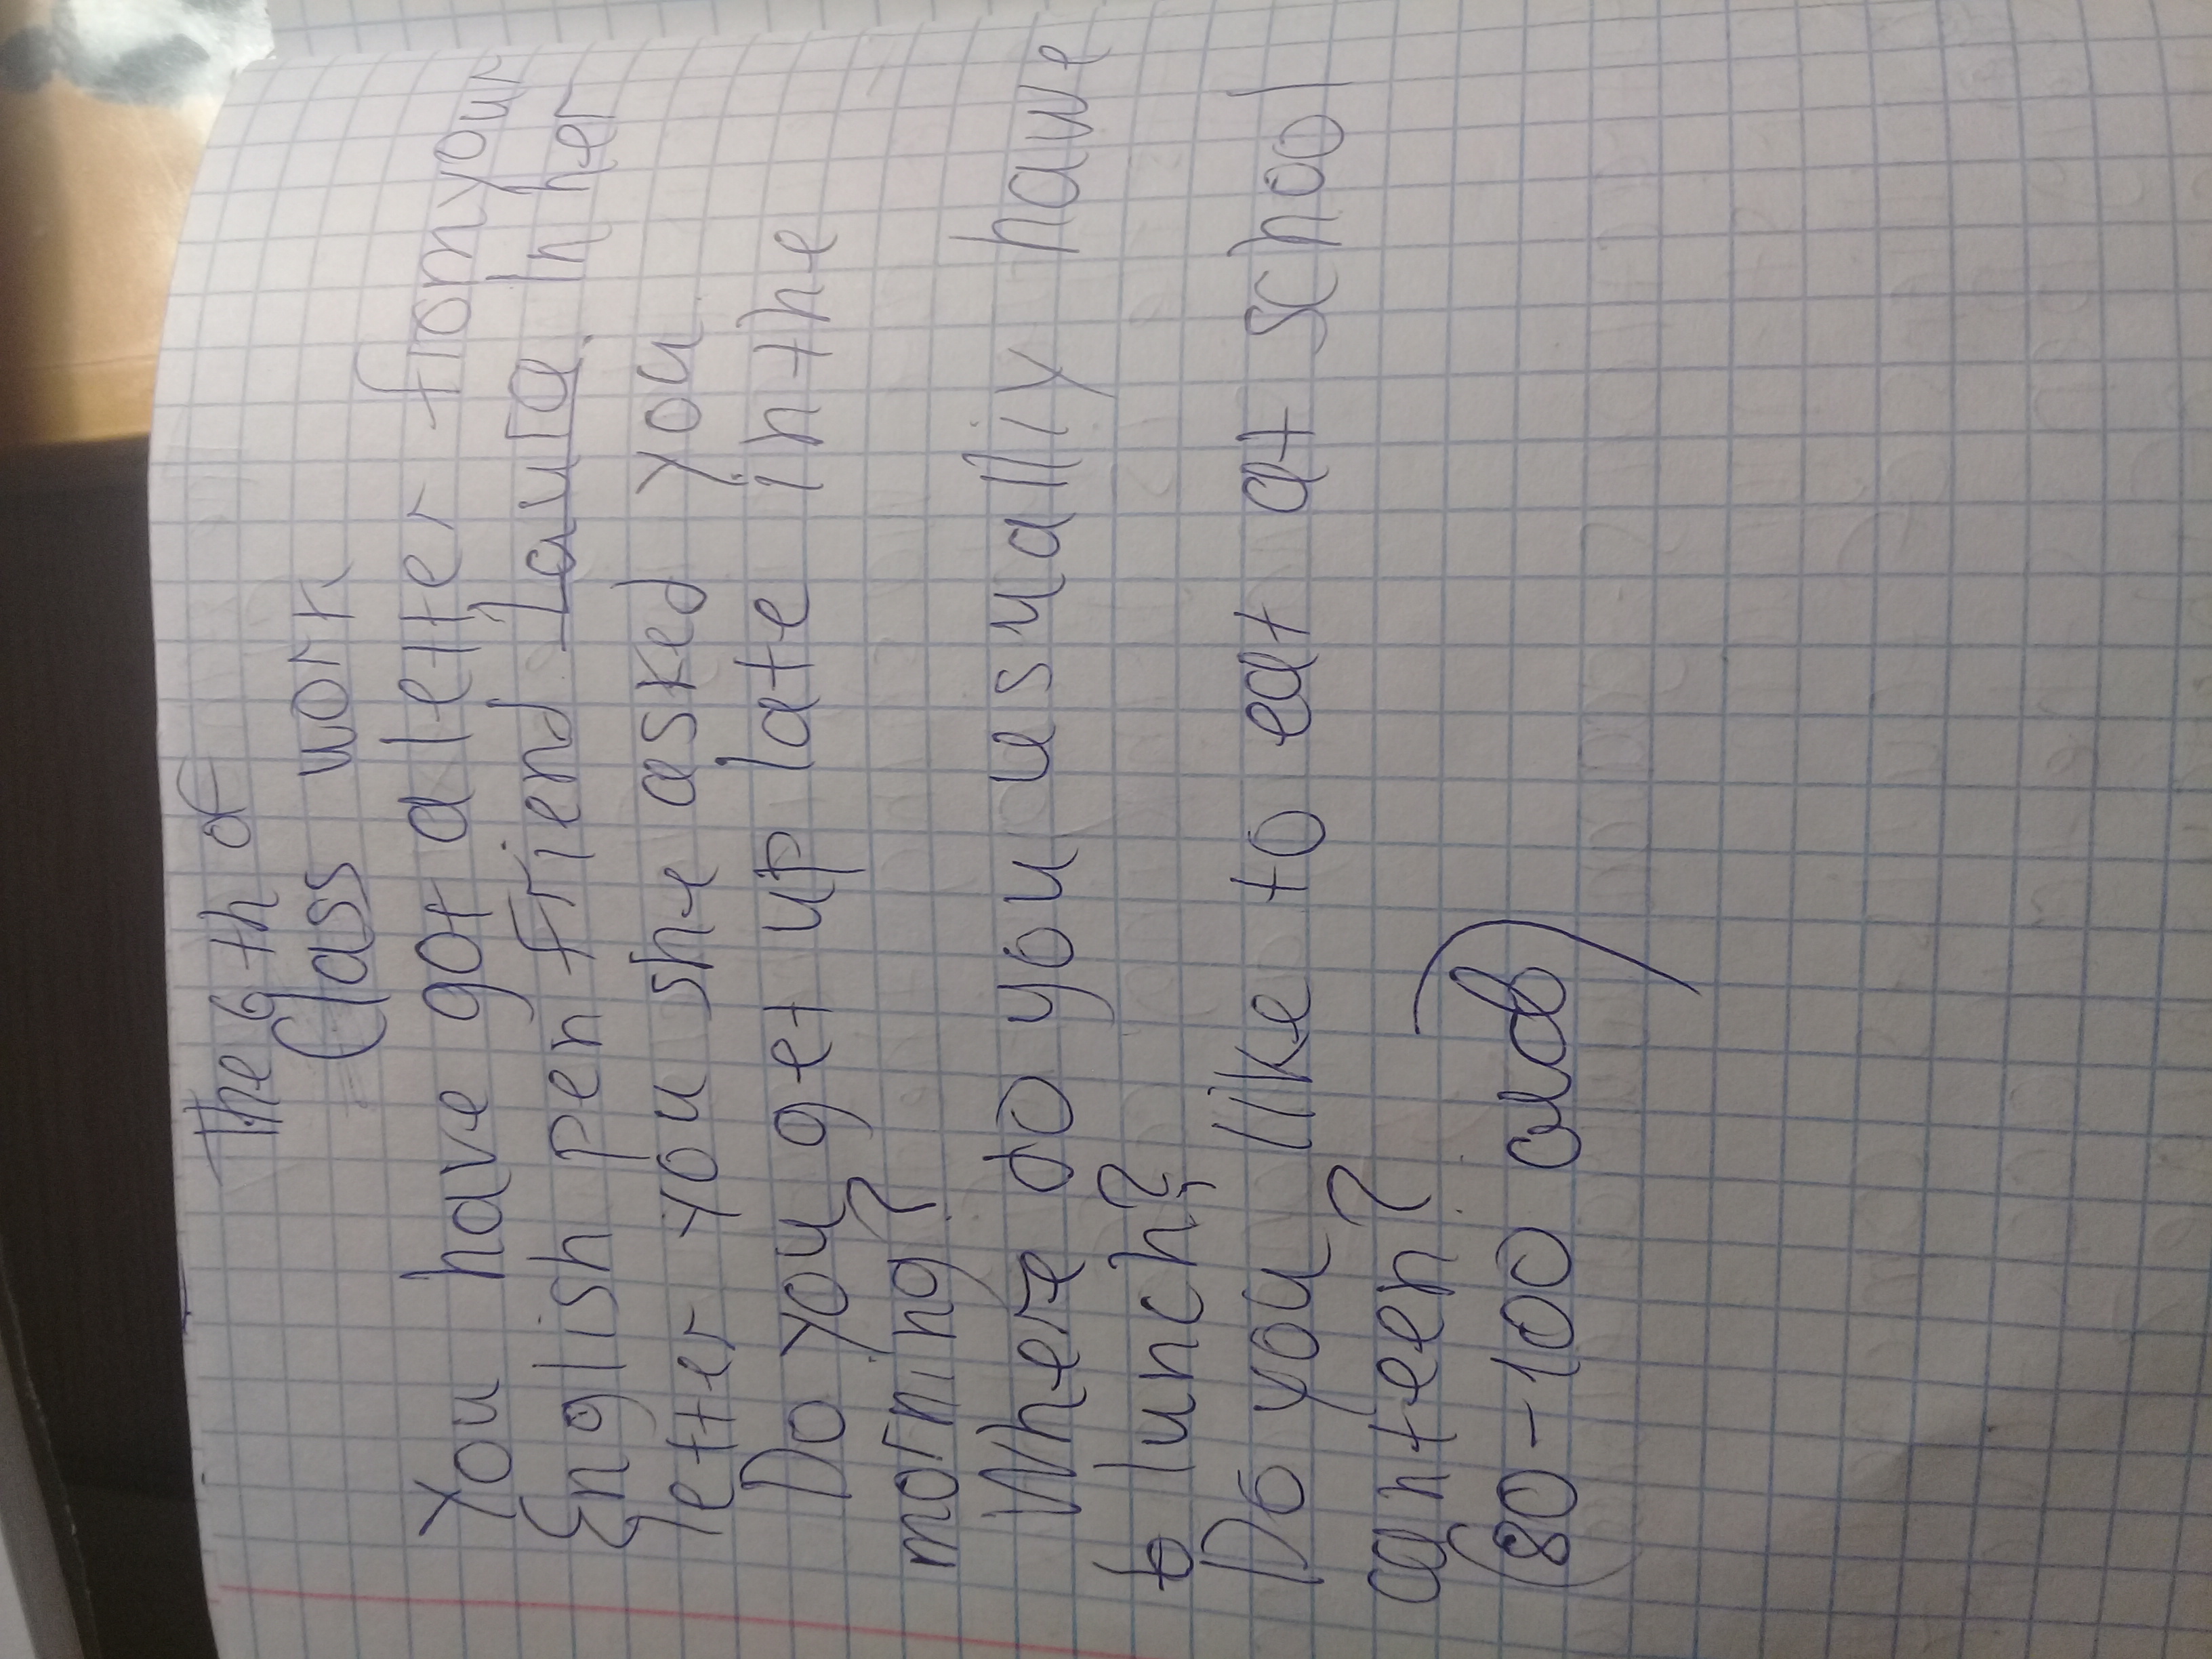 The 6th of
Class work
You have got a letter from your
English pen friend Laura. In her
letter you she asked you.
Do you get up late in the
morning?
Where do you usualliy hawe
lunch?
Do you like to eat at school
canteen?
(80-100 слов)